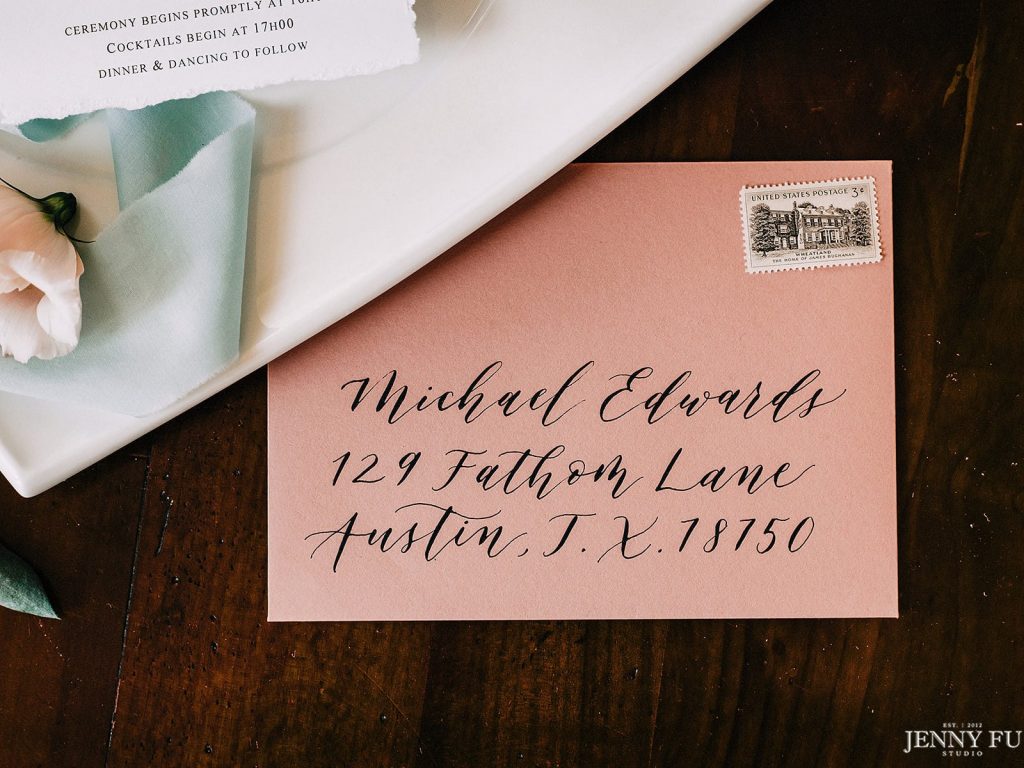 CEREMONY BEGINS PROMPTLY AT
COCKTAILS BEGIN AT 17H00
DINNER & DANCING TO FOLLOW
UNITED STATES POSTAGE 3¢
WHEATLAND
THE HOME OF JAMES BUCHANAN
Michael Edwards
129 Fathom Lane
Austin, T. X. 78750
EST. | 2012
JENNY FU
STUDIO